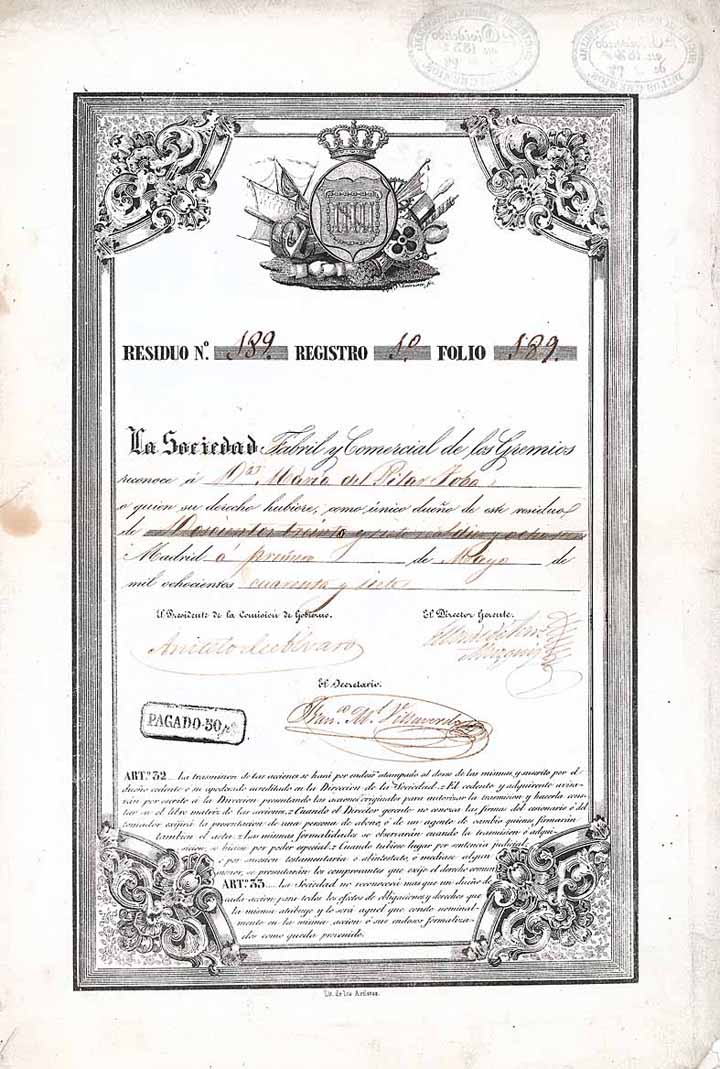 RESIDUO Nº. 189. REGISTRO 1º FOLIO 189.
La Sociedad Fabril y Comercial de los Gremios
reconoce á Dª María del Pilar
o quien su derecho hubiere, como único dueño de este residuo
de Doscientos treinta y siete
Madrid á primero de Mayo de
mil ochocientos cuarenta y siete
El Presidente de la Comision de Gobierno.
El Director Gerente.
Aniceto de Alvaro
El Secretario.
Franco. Mª. Villaverde
PAGADO 50
ART.º 32 La trasmision de las acciones se hará por endoso estampado al dorso de las mismas, y suscrito por el
dueño cedente ó su apoderado acreditado en la Direccion de la Sociedad. El cedente y adquirente avisa-
rán por escrito á la Direccion presentando las acciones originales para autorizar la trasmision y hacerla cons-
tar en el libro matriz de las acciones. Cuando el Director gerente no conozca las firmas del cesionario ó del
tomador exigirá la presentacion de una persona de abono, ó de un agente de cambio quienes firmarán
tambien el acta. Las mismas formalidades se observarán cuando la trasmision ó adqui-
sicion, se hiciese por poder especial. Cuando tubiese lugar por sentencia judicial,
ó por sucesion testamentaria ó abintestato, ó mediase algun
menor, se presentarán los comprobantes que exije el derecho comun
ART.º 33 La Sociedad no reconocerá mas que un dueño de
cada accion para todos los efectos de obligaciones y derechos que
la misma atribuye y lo será aquel que conste nominal-
mente en la misma accion ó sus endosos formaliza-
dos como queda prevenido.
Lit. de los Artistas.